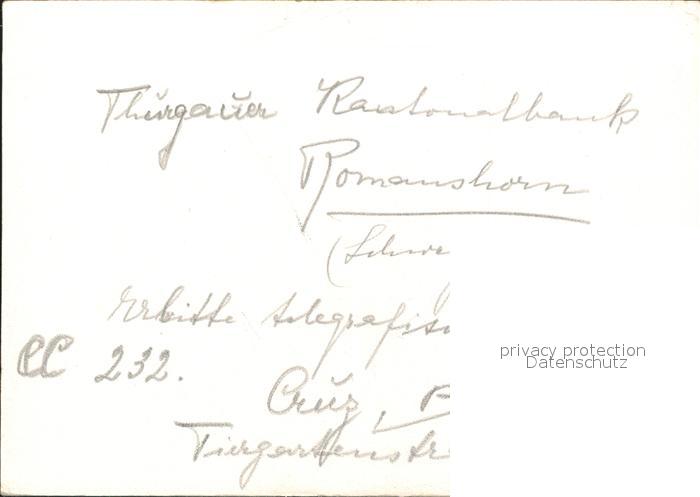 Thurgauer Kantonalbank
Romanshorn
(Schwe
Erbitte telegrafisc
CC 232.
Cruz, B
Tiergartenstr
privacy protection
Datenschutz